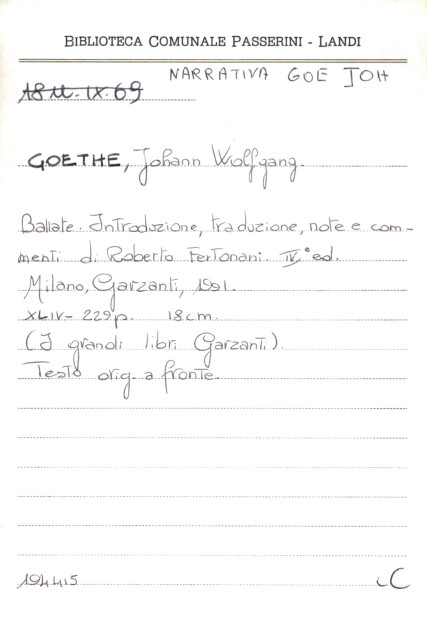 BIBLIOTECA COMUNALE PASSERINI - LANDI
NARRATIVA GOE JOH
18 U. IX. 69
GOETHE, Johann Wolfgang.
Ballate. Introduzione, traduzione, note e com-
menti di Roberto Fertonani. IVª ed.
Milano, Garzanti, 1991.
XLIV- 229p. 18cm.
(I grandi libri Garzanti).
Testo orig. a fronte.
194415
C